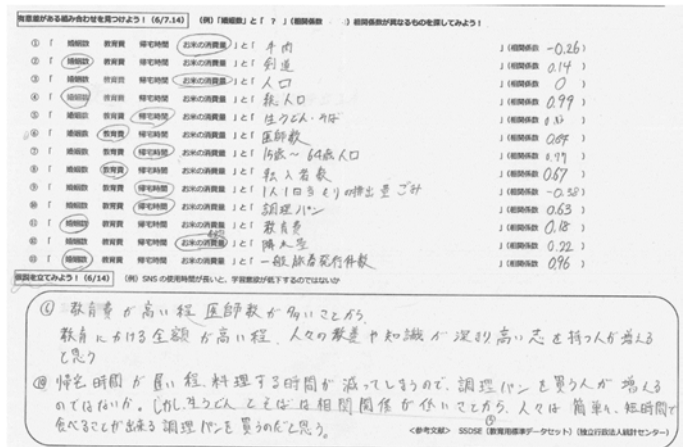 有意差がある組み合わせを見つけよう!(6/7.14) (例)「婚姻数」と「 ? 」(相関係数 )相関係数が異なるものを探してみよう!
① 「 婚姻数 教育費 帰宅時間 お米の消費量 」と「 牛肉 」(相関係数 -0.26 )
② 「 婚姻数 教育費 帰宅時間 お米の消費量 」と「 剣道 」(相関係数 0.14 )
③ 「 婚姻数 教育費 帰宅時間 お米の消費量 」と「 人口 」(相関係数 0 )
④ 「 婚姻数 教育費 帰宅時間 お米の消費量 」と「 総人口 」(相関係数 0.99 )
⑤ 「 婚姻数 教育費 帰宅時間 お米の消費量 」と「 生うどん・そば 」(相関係数 )
⑥ 「 婚姻数 教育費 帰宅時間 お米の消費量 」と「 医師数 」(相関係数 )
⑦ 「 婚姻数 教育費 帰宅時間 お米の消費量 」と「 15歳〜64歳人口 」(相関係数 )
⑧ 「 婚姻数 教育費 帰宅時間 お米の消費量 」と「 転入者数 」(相関係数 0.67 )
⑨ 「 婚姻数 教育費 帰宅時間 お米の消費量 」と「 1人1日当たりの排出量 ごみ 」(相関係数 )
⑩ 「 婚姻数 教育費 帰宅時間 お米の消費量 」と「 調理パン 」(相関係数 0.63 )
⑪ 「 婚姻数 教育費 帰宅時間 お米の消費量 」と「 教育費 」(相関係数 0.18 )
⑫ 「 婚姻数 教育費 帰宅時間 お米の消費量 」と「 降水量 」(相関係数 0.22 )
⑬ 「 婚姻数 教育費 帰宅時間 お米の消費量 」と「 一般旅券発行件数 」(相関係数 0.96 )
仮説を立てみよう!(6/14) (例)SNSの使用時間が長いと、学習意欲が低下するのではないか
⑥ 教育費が高い程、医師数が多いことから、
教育にかける金額が高い程、人々の教養や知識が深まり高い志を持つ人が増える
と思う
⑩ 帰宅時間が長い程、料理する時間が減ってしまうので、調理パンを買う人が増える
のではないか。しかし、生うどんとそばは相関関係が低いことから、人々は簡単、短時間で
食べることが出来る調理パンを買うのだと思う。
<参考文献> SSDSE(教育用標準データセット)(独立行政法人統計センター)